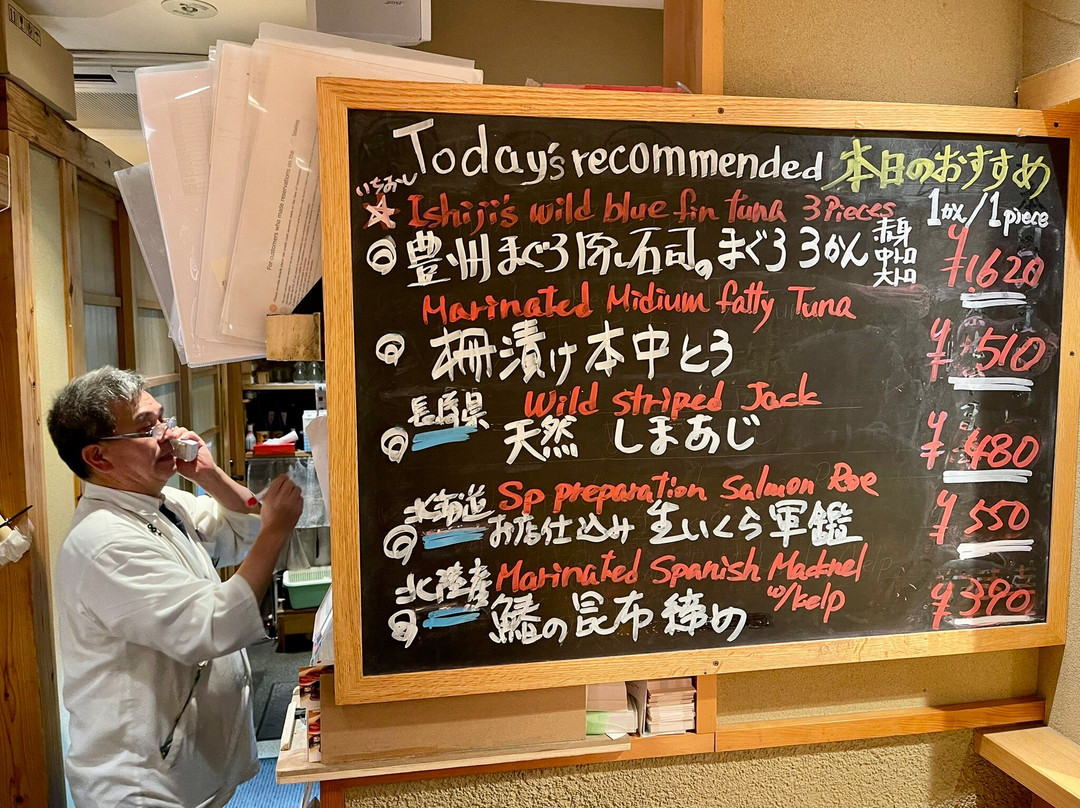 Today's recommended 本日のおすすめ
いちおし
☆ Ishiji's wild blue fin tuna 3 Pieces 1かん/1piece
豊洲まぐろ原石司。まぐろ3かん 赤身 中トロ 大トロ ¥1620
Marinated Midium fatty Tuna
柵漬け本中とろ ¥510
長崎県 Wild Striped Jack
天然 しまあじ ¥480
北海道 Sp preparation Salmon Roe
お店仕込み 生いくら軍艦 ¥550
北陸産 Marinated Spanish Mackrel
w/kelp
鰆の昆布締め ¥390
For customers who made reservations on the